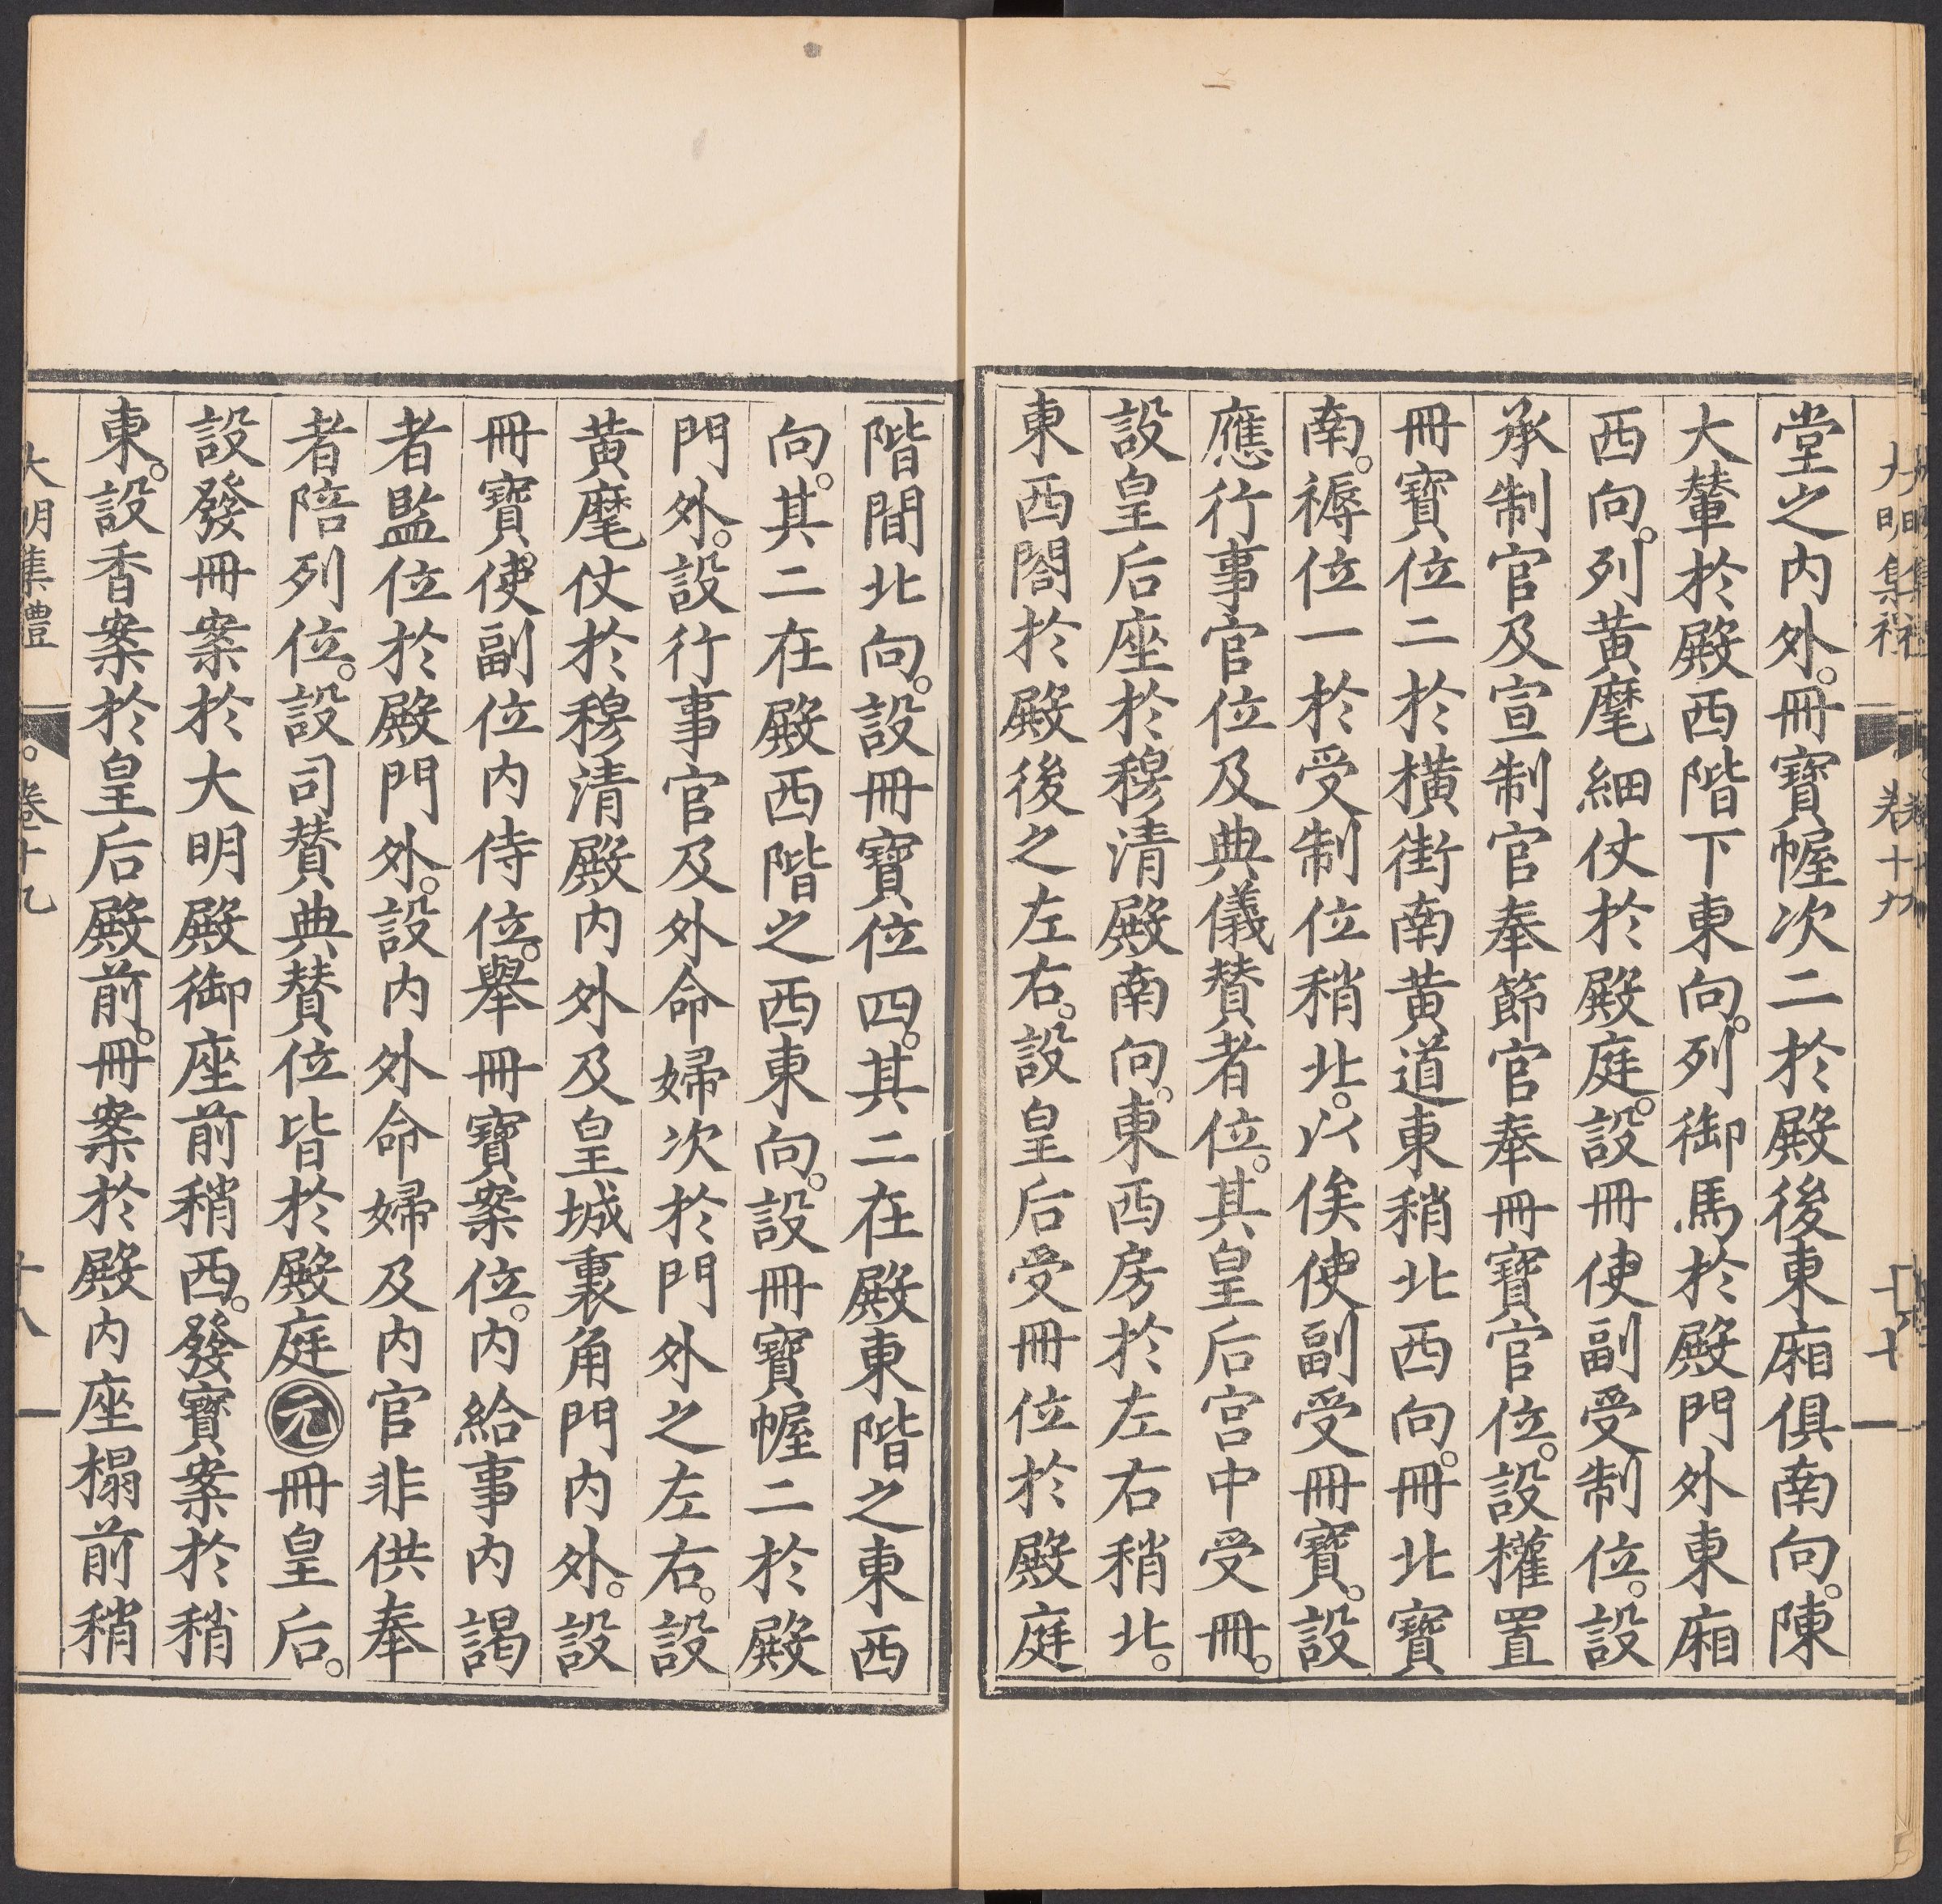 堂之內外。冊寶幄次二於殿後東廂俱南向。陳
大輦於殿西階下東向。列御馬於殿門外東廂
西向。列黃麾細仗於殿庭。設冊使副受制位。設
承制官及宣制官奉節官奉冊寶官位。設權置
冊寶位二於橫街南黃道東稍北西向。冊北寶
南。褥位一於受制位稍北。以俟使副受冊寶。設
應行事官位及典儀贊者位。其皇后宮中受冊。
設皇后座於穆清殿南向。東西房於左右稍北。
東西閤於殿後之左右。設皇后受冊位於殿庭
階間北向。設冊寶位四。其二在殿東階之東西
向。其二在殿西階之西東向。設冊寶幄二於殿
門外。設行事官及外命婦次於門外之左右。設
黃麾仗於穆清殿內外及皇城裏角門內外。設
冊寶。使副位內侍位。舉冊寶案位。內給事內謁
者監位於殿門外。設內外命婦及內官非供奉
者陪列位。設司贊典贊位皆於殿庭㊁元冊皇后。
設發冊案於大明殿御座前稍西。發寶案於稍
東。設香案於皇后殿前。冊案於殿內座榻前稍
大明集禮 卷十九 十八